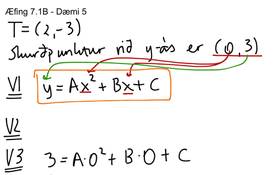 Æfing 7.1B - Dæmi 5
T = (2, -3)
Skurðpunktur við y-ás er (0, 3)
V1 y = Ax² + Bx + C
V2
V3 3 = A·0² + B·0 + C